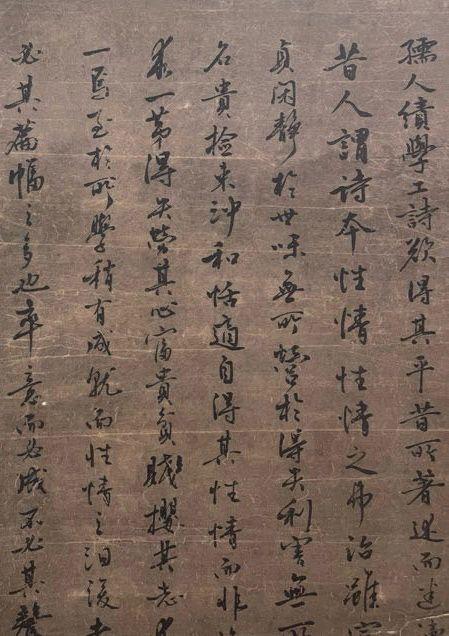 孺人績學工詩欲得其平昔所著述而
昔人謂詩本性情性情之弗治雖
貞閑靜於世味無所嗜於得失利害無一
名貴撿束沖和恬適自得其性情而非
一第得失營其心富貴貧賤攖其志
一焉至於所學稍有成就而性情之汩沒
必其篇幅之多也率意而必成不必其